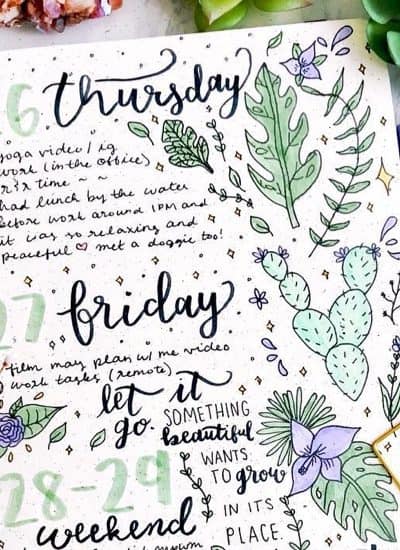 6 thursday
yoga video / ig
work (in the office)
r+r time ~ ~
had lunch by the water
before work around 1PM and
it was so relaxing and
peaceful ♡ met a doggie too!
27 friday
film may plan w/ me video
work tasks (remote)
let it
go.
SOMETHING
beautiful
WANTS
TO grow
IN ITS
PLACE.
28-29
weekend